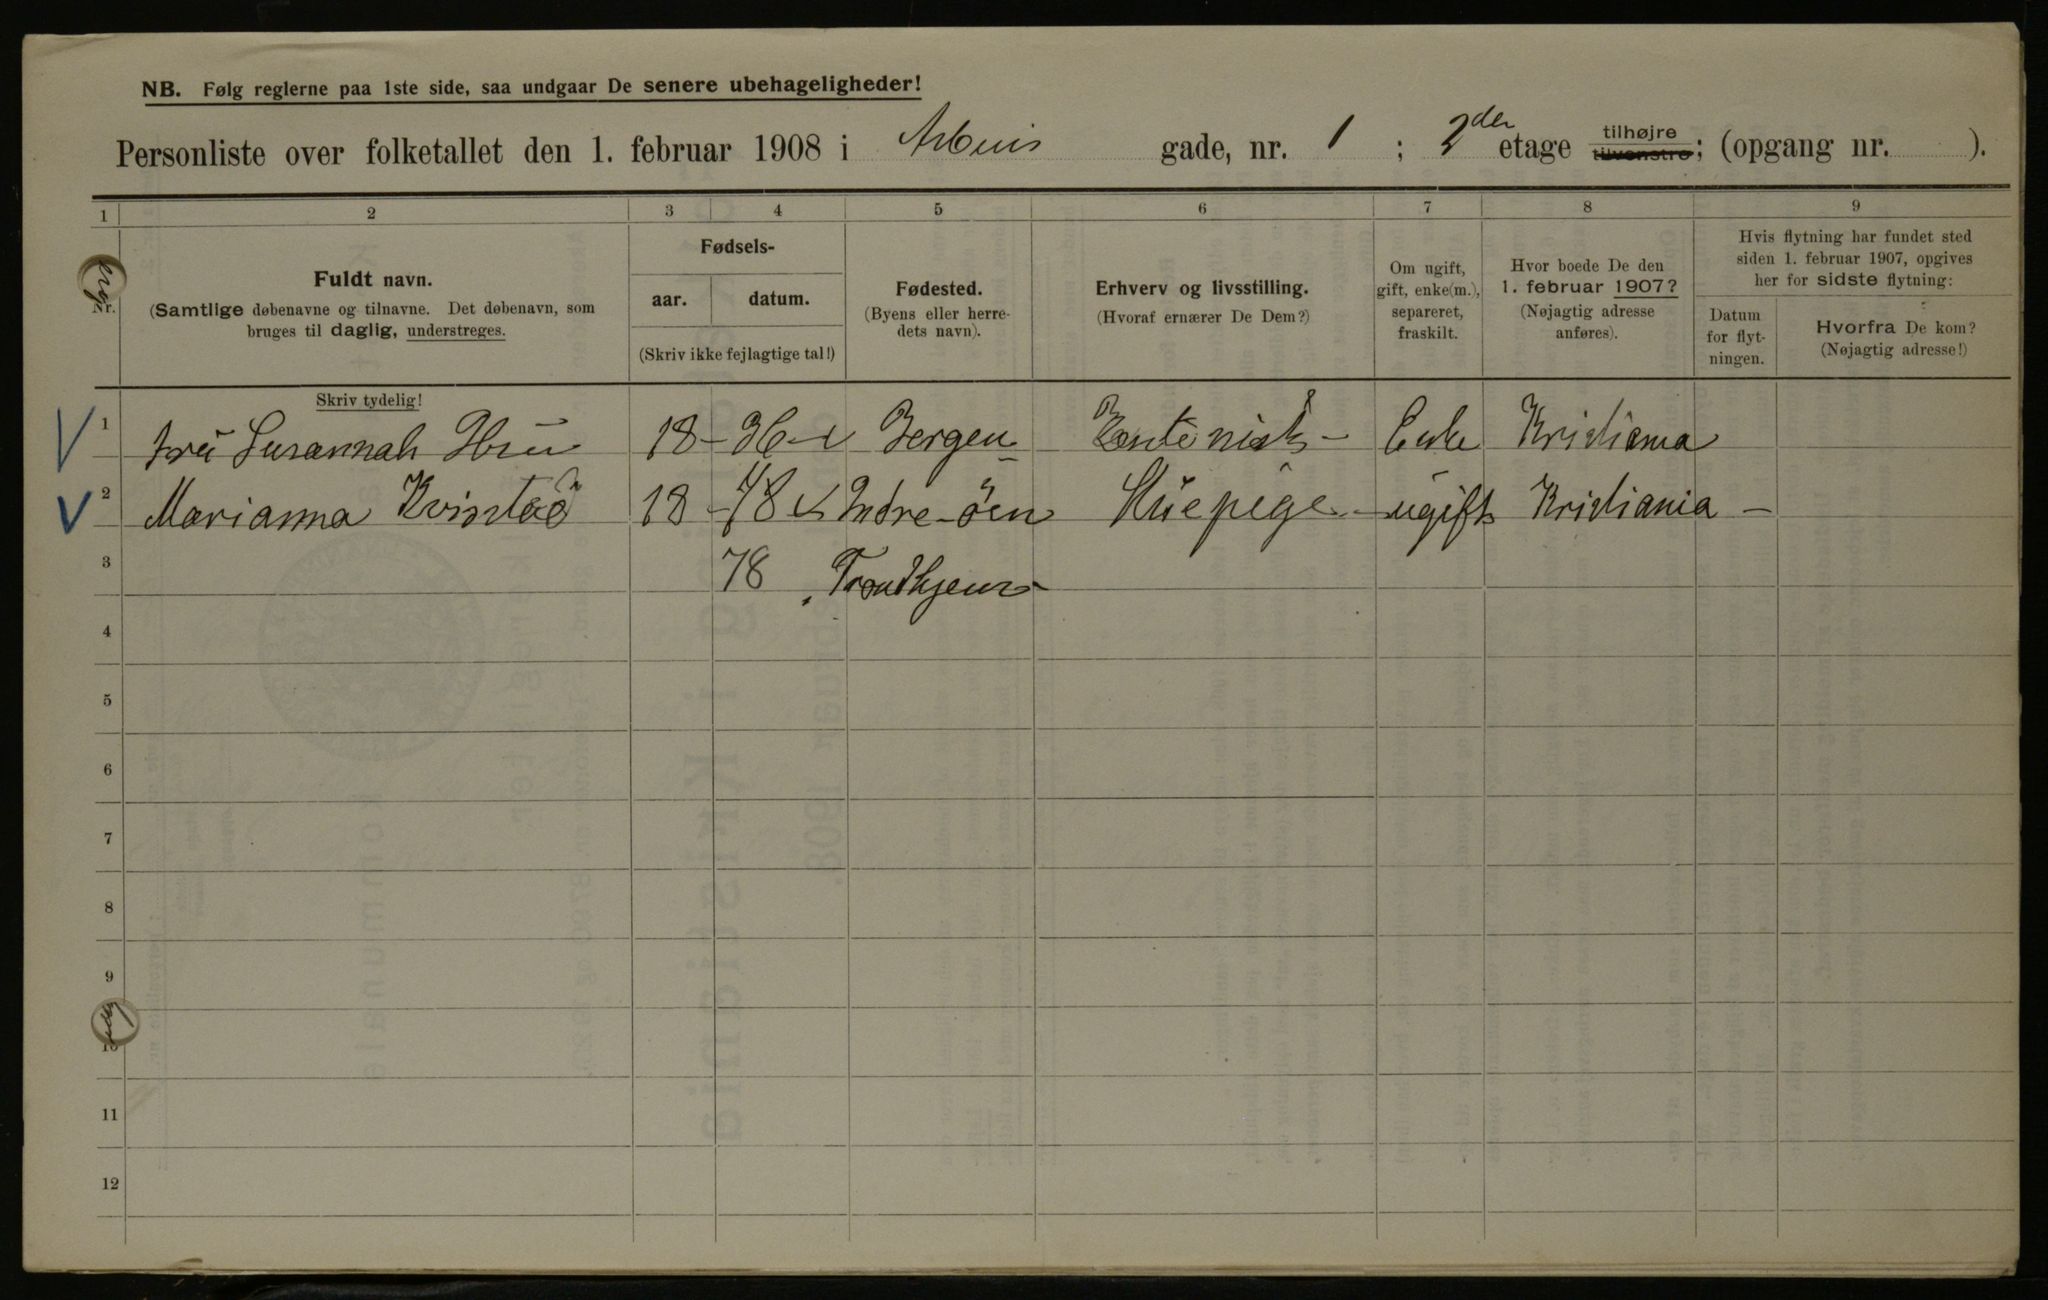 NB. Følg reglerne paa 1ste side, saa undgaar De senere ubehageligheder!
Personliste over folketallet den 1. februar 1908 i Arbins gade, nr. 1 ; 2den etage tilhøjre tilvenstre; (opgang nr. ).
1 2 3 4 5 6 7 8 9
Nr.
Fuldt navn.
(Samtlige døbenavne og tilnavne. Det døbenavn, som
bruges til daglig, understreges.
Fødsels-
aar. datum.
(Skriv ikke fejlagtige tal!)
Fødested.
(Byens eller herre-
dets navn).
Erhverv og livsstilling.
(Hvoraf ernærer De Dem?)
Om ugift,
gift, enke(m.),
separeret,
fraskilt.
Hvor boede De den
1. februar 1907?
(Nøjagtig adresse
anføres).
Hvis flytning har fundet sted
siden 1. februar 1907, opgives
her for sidste flytning:
Datum
for flyt-
ningen.
Hvorfra De kom?
(Nøjagtig adresse!)
Skriv tydelig!
1 fru Susannah Ibsen 18 - 36 Bergen Rentenist - Enke Kristiania
2 Marianna Kvistad 18 - 78 Indre-öen Stuepige - ugift Kristiania -
3 78 Trondhjem -
4
5
6
7
8
9
10
11
12